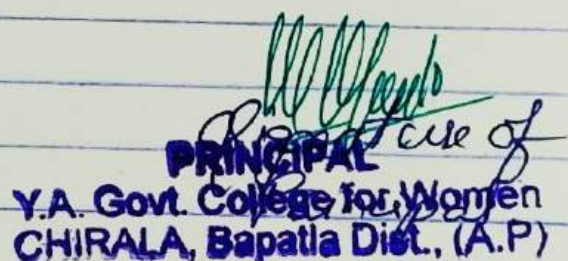 Signature of
PRINCIPAL
Principal
Y.A. Govt. College for Women
CHIRALA, Bapatla Dist., (A.P)